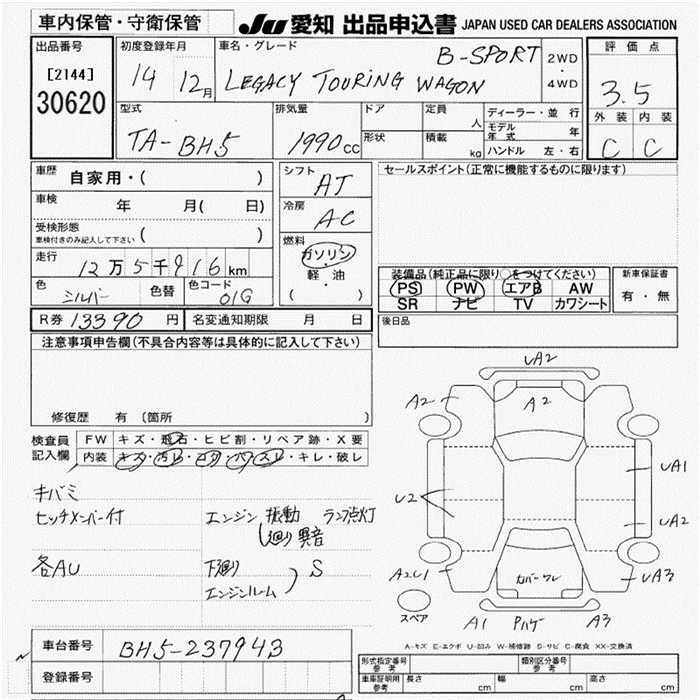 車内保管・守衛保管
JU 愛知 出品申込書 JAPAN USED CAR DEALERS ASSOCIATION
出品番号
[2144]
30620
初度登録年月
14 12月
車名・グレード
B-SPORT
LEGACY TOURING WAGON
2WD
・
4WD
評価点
3.5
外装 内装
C C
型式
TA-BH5
排気量
1990cc
ドア
形状
定員
人
積載
kg
ディーラー・並行
モデル年式 年
ハンドル 左・右
車歴
自家用・( )
車検
年 月( 日)
受検形態
車検付きのみ記入して下さい ( )
走行
12万5千916km
色
シルバー
色替
色コード
01G
シフト
AT
冷房
AC
燃料
ガソリン
・
軽・油
( )
セールスポイント(正常に機能するものに限ります)
装備品(純正品に限り○をつけてください)
PS PW エアB AW
SR ナビ TV カワシート
新車保証書
有・無
R券 13390円
名変通知期限 月 日
後日品
注意事項申告欄(不具合内容等は具体的に記入して下さい)
修復歴 有(箇所 )
検査員
記入欄
FW キズ・飛石・ヒビ割・リペア跡・X要
内装 キズ・汚レ・コゲ・パスレ・キレ・破レ
キバミ
ヒッチメンバー付
各AU
エンジン 振動 ランプ点灯
廻り異音
下廻り
エンジンルーム
S
UA2
A2
A2
UA1
U2
UA2
A2U1
カバーワレ
UA3
スペア
A1
Pハゲ
A3
A-キズ E-エクボ U-凹み W-補修跡 S-サビ C-腐食 XX-交換済
車台番号
BH5-237943
登録番号
形式指定番号
参考
類別区分番号
参考
車庫証明用
参考
長さ cm
幅 cm
高さ cm